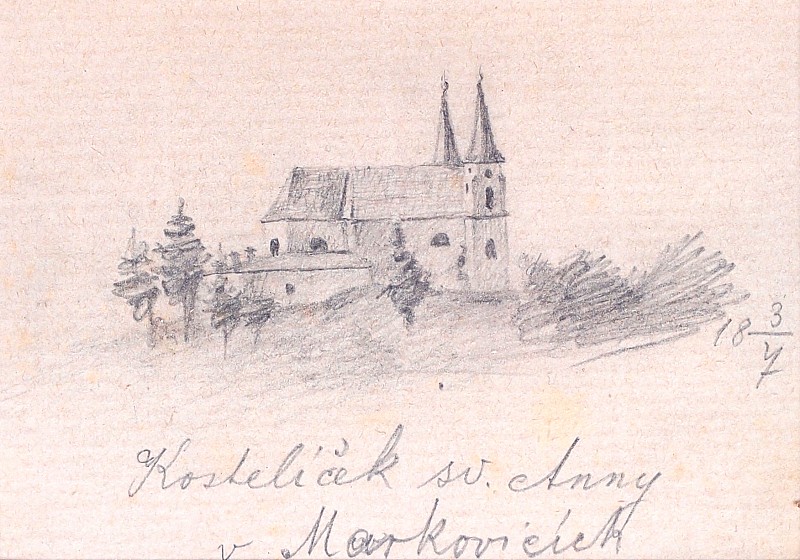 18 3/7
Kostelíček sv. Anny
v Markovicích